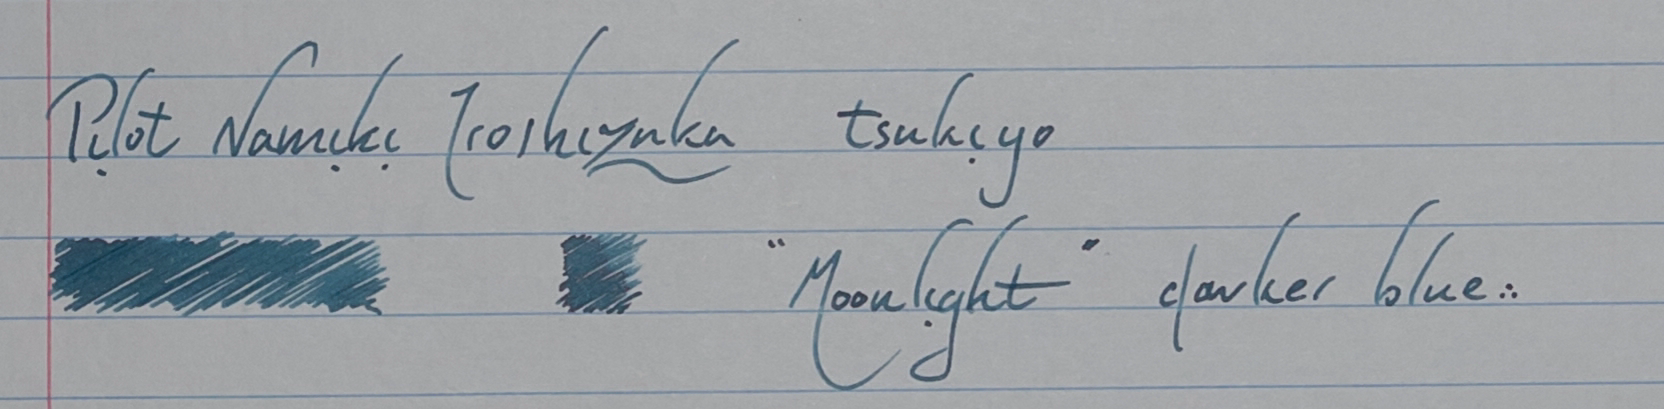 Pilot Namiki Iroshizuku tsukiyo
"Moonlight" darker blue∴